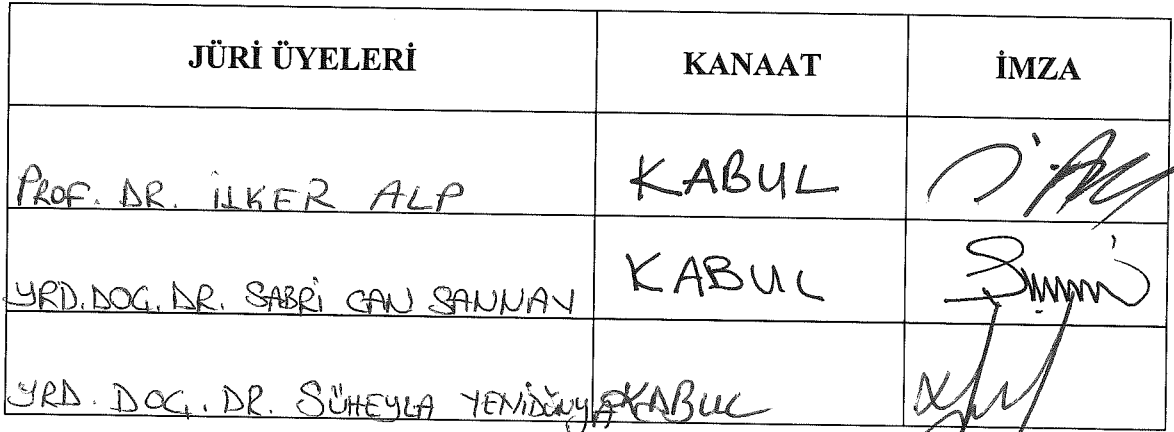 JÜRİ ÜYELERİ KANAAT İMZA
PROF. DR. İLKER ALP KABUL
YRD. DOÇ. DR. SABRİ CAN SANNAV KABUL
YRD. DOÇ. DR. SÜHEYLA YENİDÜNYA KABUL